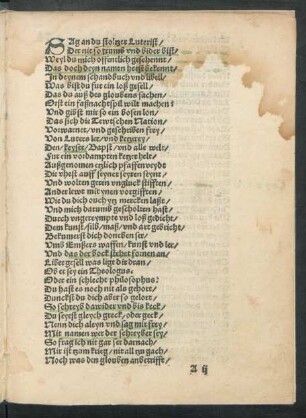 SAg an du stoltzer Luterist/
Der nit so frumb und bider bist/
Weyl du mich offentlich geschennt/
Das doch deyn namen hetst bekennt/
In deynem schandbuch und libell/
Was bist du fur ein loß gesell/
Das du auß des gloubens sachen/
Erst ein faßnachtspil wilt machen
Und gibst mir so ein bösen lon/
Das sich die Tewtschen Nation/
Vorwarnet/ und geschriben frey/
Von Luters ler/ und ketzerey/
Den/ keyser/ Bapst/ und alle welt/
Fur ein vordampten ketzer helt/
Außgenomen etzlich pfaffen
Die vhest auff seyner seyten seynt/
Und wolten gern ungluck stifften/
Ander leut mit ynen vorgifften/
Wie du dich ouch yn mercken laßt/
Und mich darumb gescholten hast/
Durch ungereympte und loß gedicht/
Dem kunst/ silb/ maß/ und art gebricht/
Bekumerst dich doneben ser/
Umb Empsers waffen/ kunst und ler/
Und das der bock sichet fornen an/
Lieber gsell was ligt dir dran/
Ob er sey ein Theologus/
Oder ein schlecht philosophus/
Du hast es noch nit als gehort/
Dunckst du dich aber so gelort/
So schreyb dawider und biß keck/
Du seyst gleych greck/ oder geck/
Nenn dich aleyn und sag mir frey/
Mit namen wer der schreyber sey/
So frag ich nit gar ser darnach/
Mit ist zum krieg/ nit all zu gach/
Noch was den glouben antrifft/
A ij